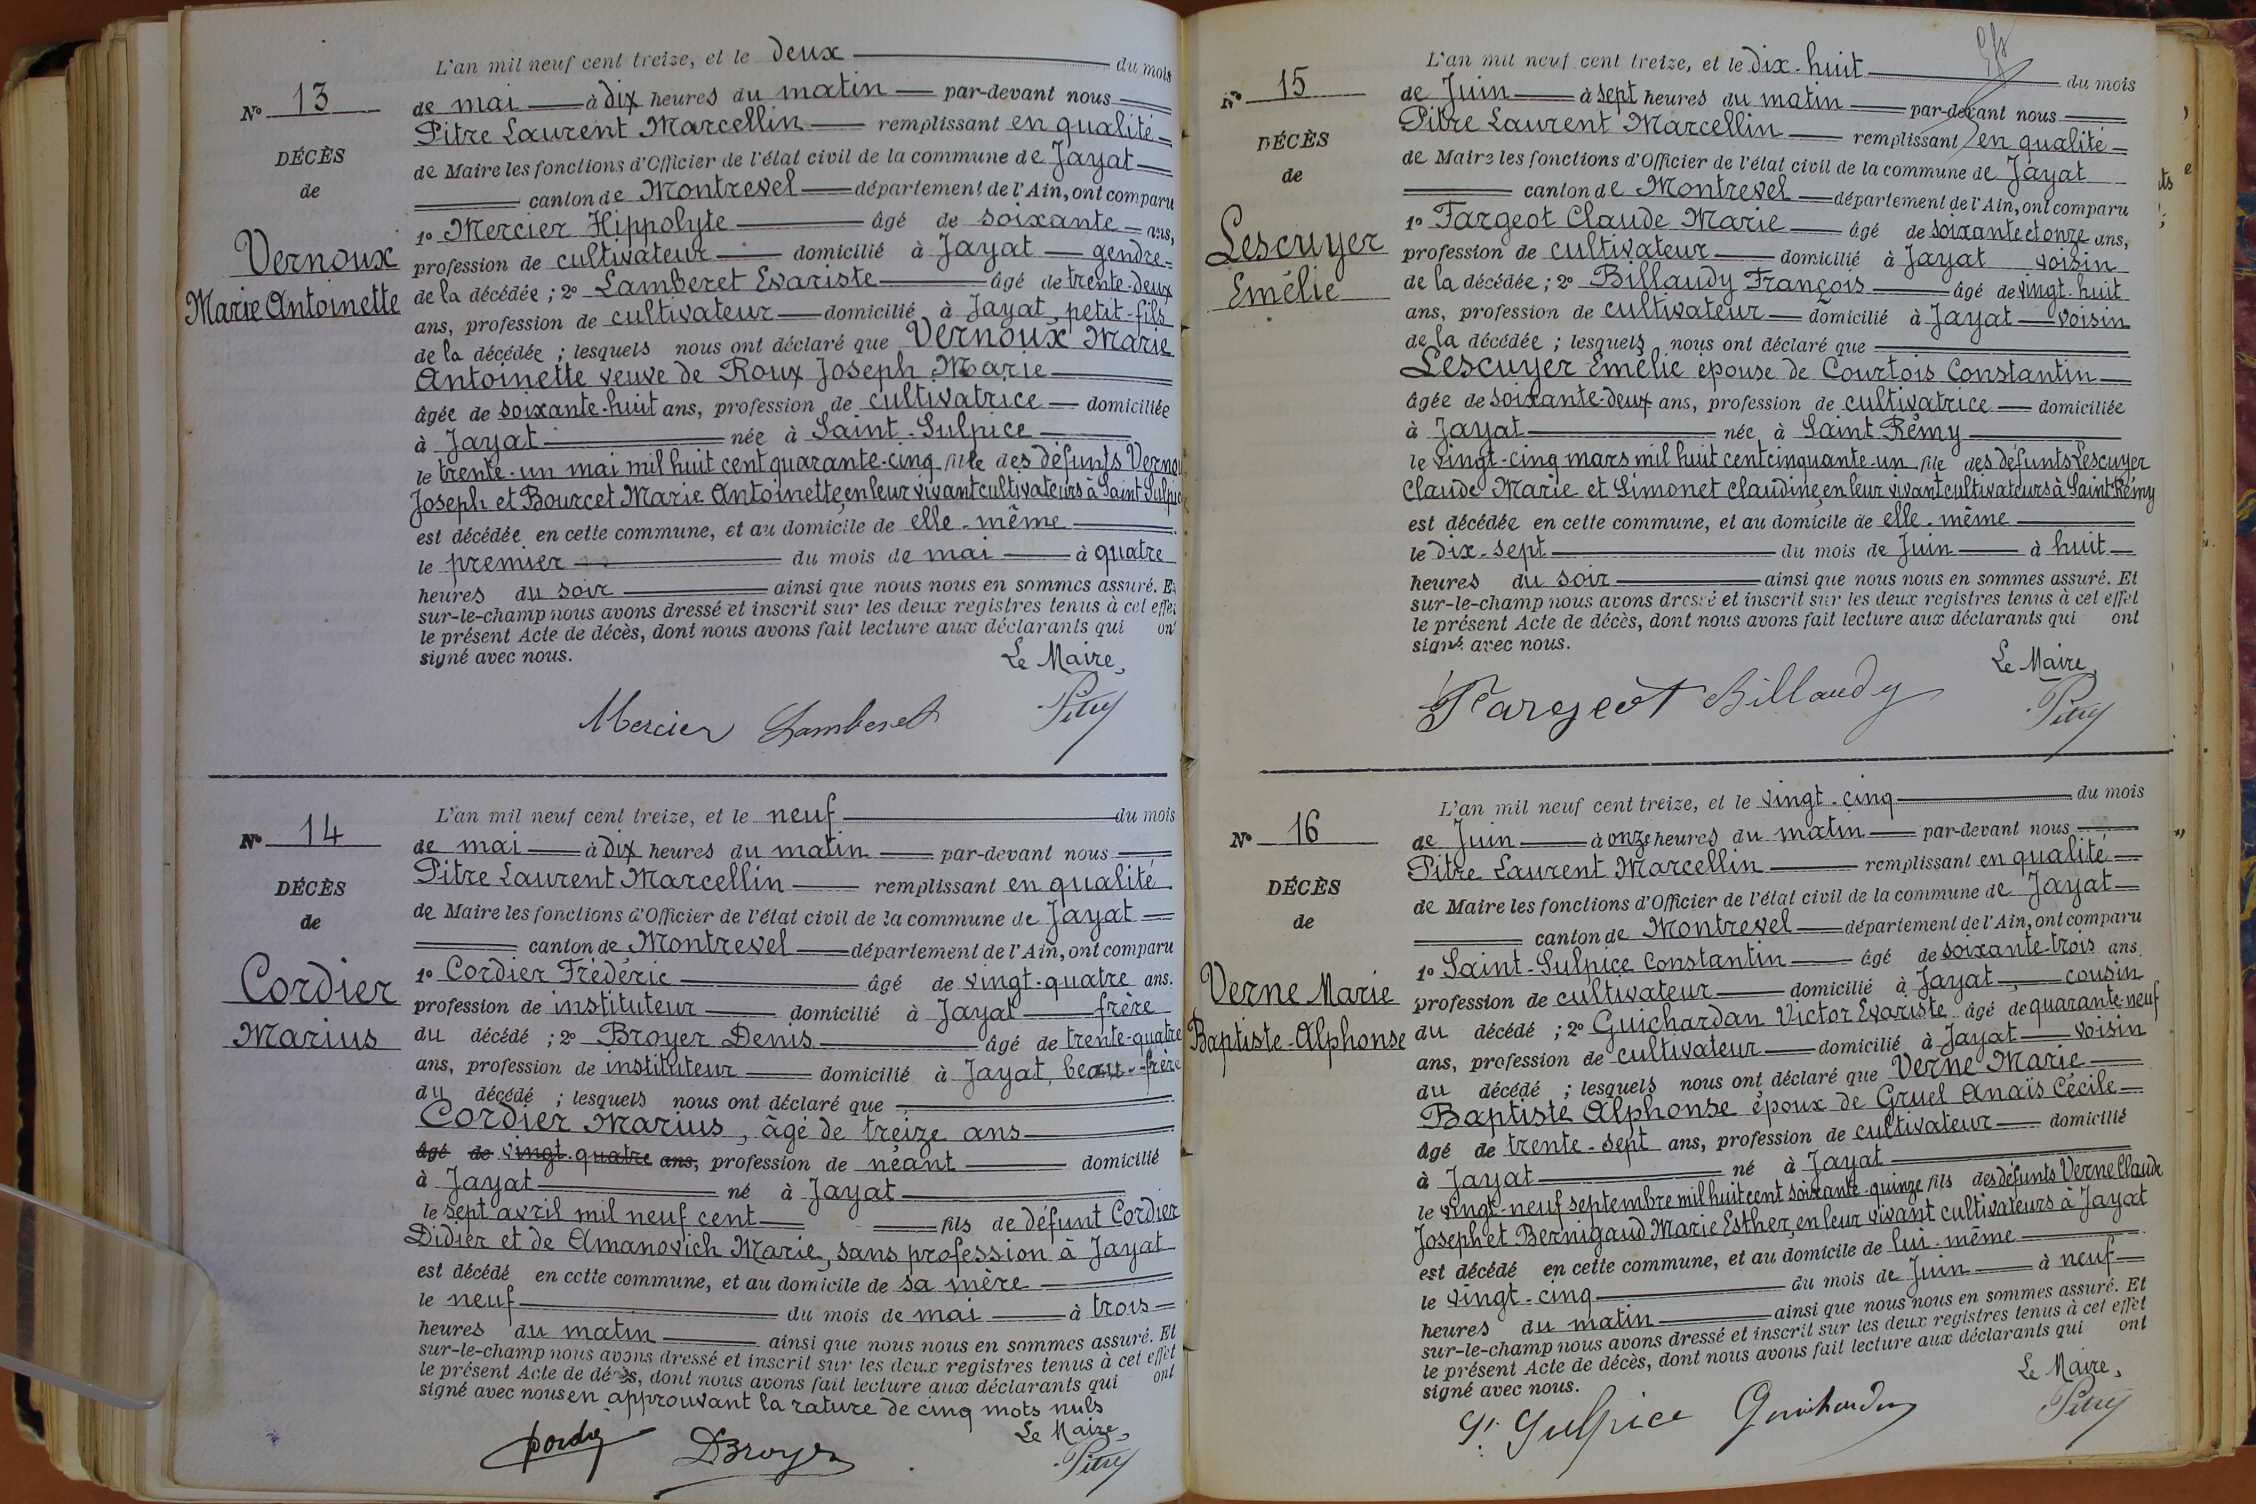 L'an mil neuf cent treize, et le deux du mois
N° 13
de mai à dix heures du matin par-devant nous
Pitre Laurent Marcellin remplissant en qualité
DÉCÈS
de Maire les fonctions d'Officier de l'état civil de la commune de Jayat
de
canton de Montrevel département de l'Ain, ont comparu
1° Mercier Hippolyte âgé de soixante ans,
Vernoux
profession de cultivateur domicilié à Jayat gendre
Marie Antoinette
de la décédée ; 2° Lamberet Evariste âgé de trente-deux
ans, profession de cultivateur domicilié à Jayat, petit-fils
de la décédée ; lesquels nous ont déclaré que Vernoux Marie
Antoinette veuve de Roux Joseph Marie
âgée de soixante-huit ans, profession de cultivatrice domiciliée
à Jayat née à Saint-Sulpice
le trente-un mai mil huit cent quarante-cinq fille des défunts Vernou
Joseph et Bourcet Marie Antoinette, en leur vivant cultivateurs à Saint Sulpice
est décédée en cette commune, et au domicile de elle-même
le premier du mois de mai à quatre
heures du soir ainsi que nous nous en sommes assuré. Et
sur-le-champ nous avons dressé et inscrit sur les deux registres tenus à cet effet
le présent Acte de décès, dont nous avons fait lecture aux déclarants qui ont
signé avec nous.
Le Maire,
Mercier Lamberet Pitre
L'an mil neuf cent treize, et le neuf du mois
N° 14
de mai à dix heures du matin par-devant nous
Pitre Laurent Marcellin remplissant en qualité
DÉCÈS
de Maire les fonctions d'Officier de l'état civil de la commune de Jayat
de
canton de Montrevel département de l'Ain, ont comparu
1° Cordier Frédéric âgé de vingt-quatre ans.
Cordier
profession de instituteur domicilié à Jayat frère
Marius
du décédé ; 2° Broyer Denis âgé de trente-quatre
ans, profession de instituteur domicilié à Jayat, beau-frère
du décédé ; lesquels nous ont déclaré que
Cordier Marius, âgé de treize ans
âgé de vingt-quatre ans, profession de néant domicilié
à Jayat né à Jayat
le sept avril mil neuf cent fils de défunt Cordier
Didier et de Amanovich Marie, sans profession à Jayat
est décédé en cette commune, et au domicile de sa mère
le neuf du mois de mai à trois
heures du matin ainsi que nous nous en sommes assuré. Et
sur-le-champ nous avons dressé et inscrit sur les deux registres tenus à cet effet
le présent Acte de décès, dont nous avons fait lecture aux déclarants qui ont
signé avec nous en approuvant la rature de cinq mots nuls
Le Maire,
Cordier DBroyer Pitre
L'an mil neuf cent treize, et le dix-huit du mois
N° 15
de Juin à sept heures du matin par-devant nous
Pitre Laurent Marcellin remplissant en qualité
DÉCÈS
de Maire les fonctions d'Officier de l'état civil de la commune de Jayat
de
canton de Montrevel département de l'Ain, ont comparu
1° Fargeot Claude Marie âgé de soixante et onze ans,
Lescuyer
profession de cultivateur domicilié à Jayat voisin
Emélie
de la décédée ; 2° Billaudy François âgé de vingt-huit
ans, profession de cultivateur domicilié à Jayat voisin
de la décédée ; lesquels nous ont déclaré que
Lescuyer Emélie épouse de Courtois Constantin
âgée de soixante-deux ans, profession de cultivatrice domiciliée
à Jayat née à Saint Rémy
le vingt-cinq mars mil huit cent cinquante-un fille des défunts Lescuyer
Claude Marie et Simonet Claudine, en leur vivant cultivateurs à Saint Rémy
est décédée en cette commune, et au domicile de elle-même
le dix-sept du mois de Juin à huit
heures du soir ainsi que nous nous en sommes assuré. Et
sur-le-champ nous avons dressé et inscrit sur les deux registres tenus à cet effet
le présent Acte de décès, dont nous avons fait lecture aux déclarants qui ont
signé avec nous.
Le Maire,
Fargeot Billaudy Pitre
L'an mil neuf cent treize, et le vingt-cinq du mois
N° 16
de Juin à onze heures du matin par-devant nous
Pitre Laurent Marcellin remplissant en qualité
DÉCÈS
de Maire les fonctions d'Officier de l'état civil de la commune de Jayat
de
canton de Montrevel département de l'Ain, ont comparu
1° Saint-Sulpice Constantin âgé de soixante-trois ans
Verne Marie
profession de cultivateur domicilié à Jayat, cousin
Baptiste-Alphonse
du décédé ; 2° Guichardan Victor Evariste âgé de quarante-neuf
ans, profession de cultivateur domicilié à Jayat voisin
du décédé ; lesquels nous ont déclaré que Verne Marie
Baptiste Alphonse époux de Gruel Anaïs Cécile
âgé de trente-sept ans, profession de cultivateur domicilié
à Jayat né à Jayat
le vingt-neuf septembre mil huit cent soixante-quinze fils des défunts Verne Claude
Joseph et Bernigaud Marie Esther, en leur vivant cultivateurs à Jayat
est décédé en cette commune, et au domicile de lui-même
le vingt-cinq du mois de Juin à neuf
heures du matin ainsi que nous nous en sommes assuré. Et
sur-le-champ nous avons dressé et inscrit sur les deux registres tenus à cet effet
le présent Acte de décès, dont nous avons fait lecture aux déclarants qui ont
signé avec nous.
Le Maire,
St Sulpice Guichardan Pitre